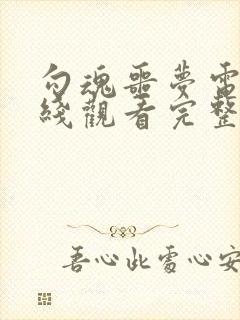 勾魂噩夢電
綫觀看完整
吾心此處心安